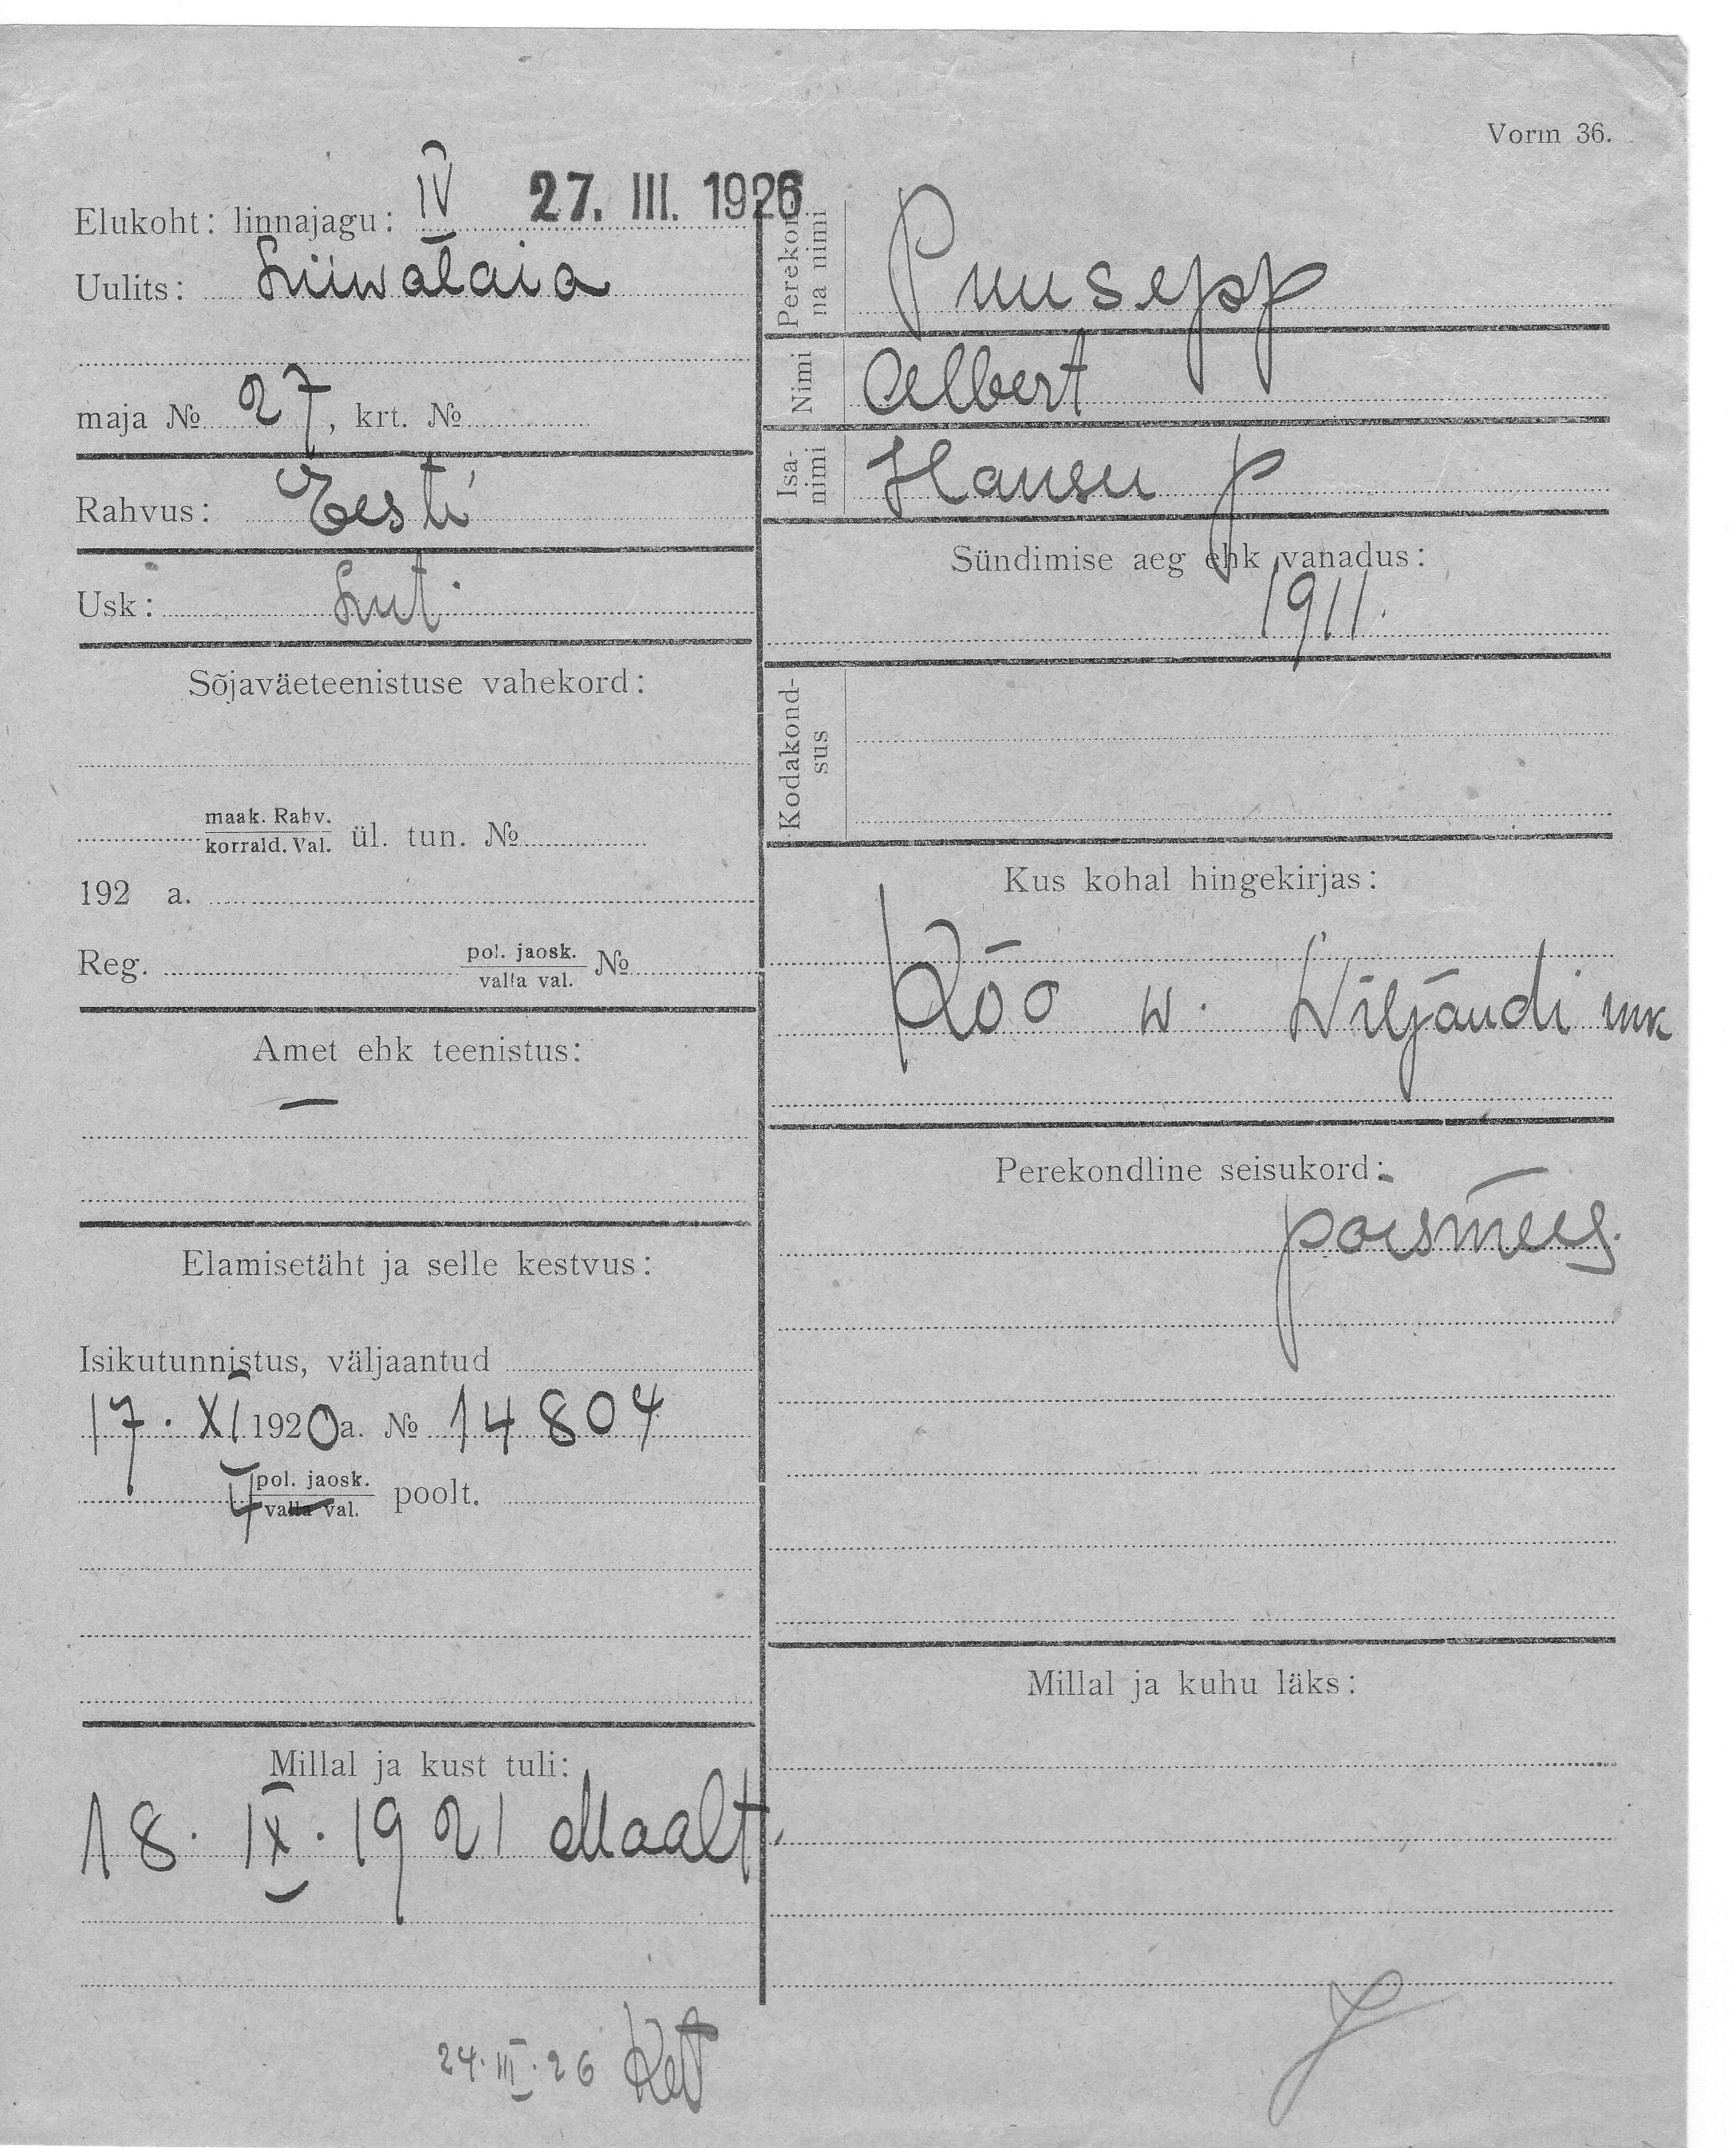 Vorm 36.
Elukoht: linnajagu: IV 27. III. 1926
Uulits: Liiwalaia
maja № 27, krt. №
Rahvus: Eesti
Usk: Lut.
Sõjaväeteenistuse vahekord:
maak. Rahv.
korrald. Val. ül. tun. №
192 a.
Reg. pol. jaosk.
valla val. №
Amet ehk teenistus:
—
Elamisetäht ja selle kestvus:
Isikutunnistus, väljaantud
17. XI 1920 a. № 14804
pol. jaosk.
valla val. poolt.
Millal ja kust tuli:
18. IX. 1921 Maalt.
24. III. 26
Perekon
na nimi Puusepp
Nimi Albert
Isa-
nimi Hansu p
Sündimise aeg ehk vanadus:
1911.
Kodakond-
sus
Kus kohal hingekirjas:
Kõo w. Wiljandi mk
Perekondline seisukord:
poismees.
Millal ja kuhu läks: